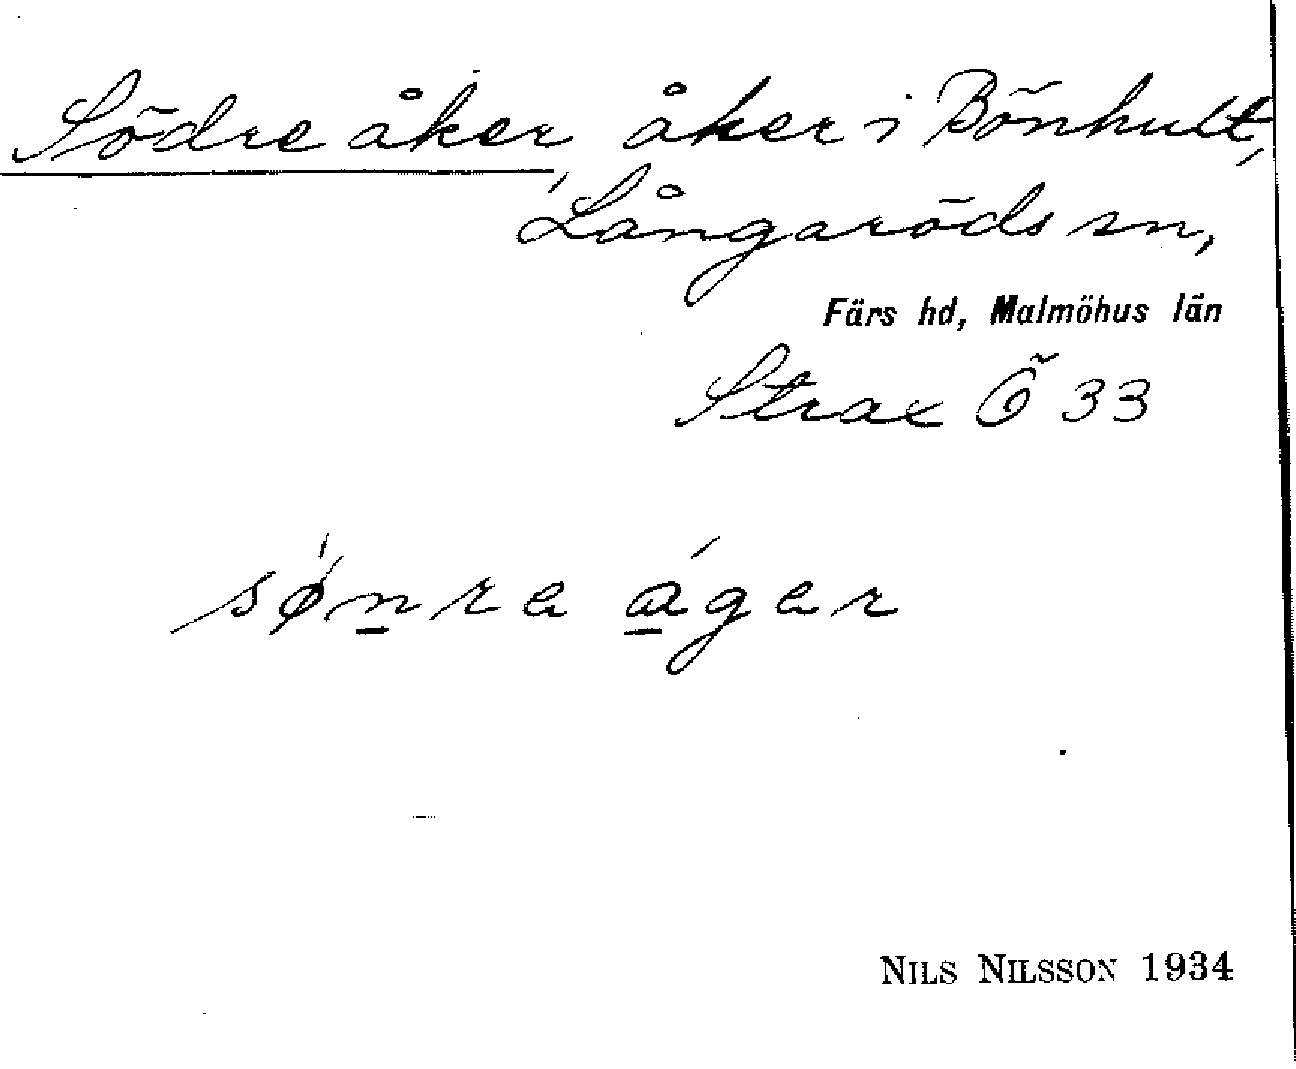 Södre åker, åker i Bönhult,
Långaröds sn,
Färs hd, Malmöhus län
Strax Ö 33
sǿn̲re á̲ger
NILS NILSSON 1934